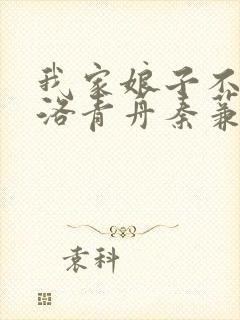 我家娘子不
洛青丹秦蒹
袁科